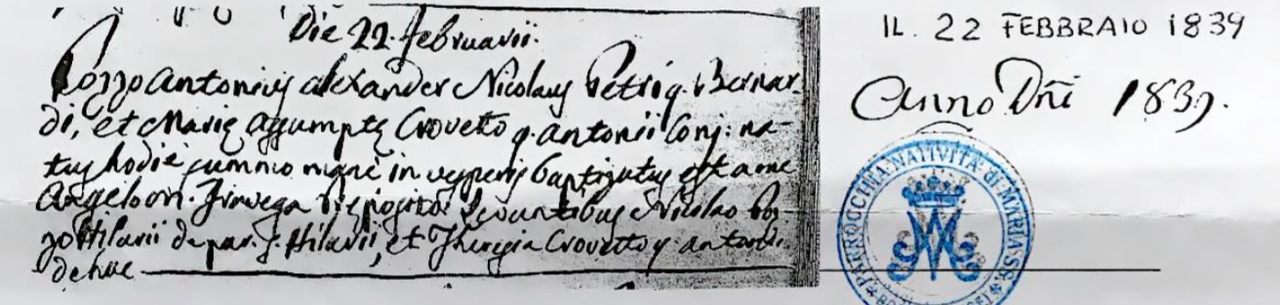 Die 22 februarii.
Bozzo Antonius Alexander Nicolaus Petri q. Bernar-
di, et Mariæ Assumptæ Crovetto q. Antonii Conj: na-
tus hodie summo mane in vesperis baptizatus est a me
Angelo Præposito: Levantibus Nicolao Boz-
zo Hilarii de par. S. Hilarii, et Theresia Crovetto q. Antonii
de hac
IL 22 FEBBRAIO 1839
Anno Dñi 1839.
PARROCCHIA NATIVITÀ di MARIA SS.